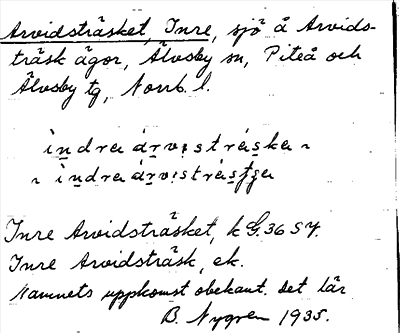 Arvidsträsket, Inre, sjö å Arvids-
träsk ägor, Älvsby sn, Piteå och
Älvsby tg, Norrb. l.
Inre Arvidsträsket, k G. 36 SY.
Inre Arvidsträsk, ek.
Namnets uppkomst obekant. Det lär
B. Nygren 1935.